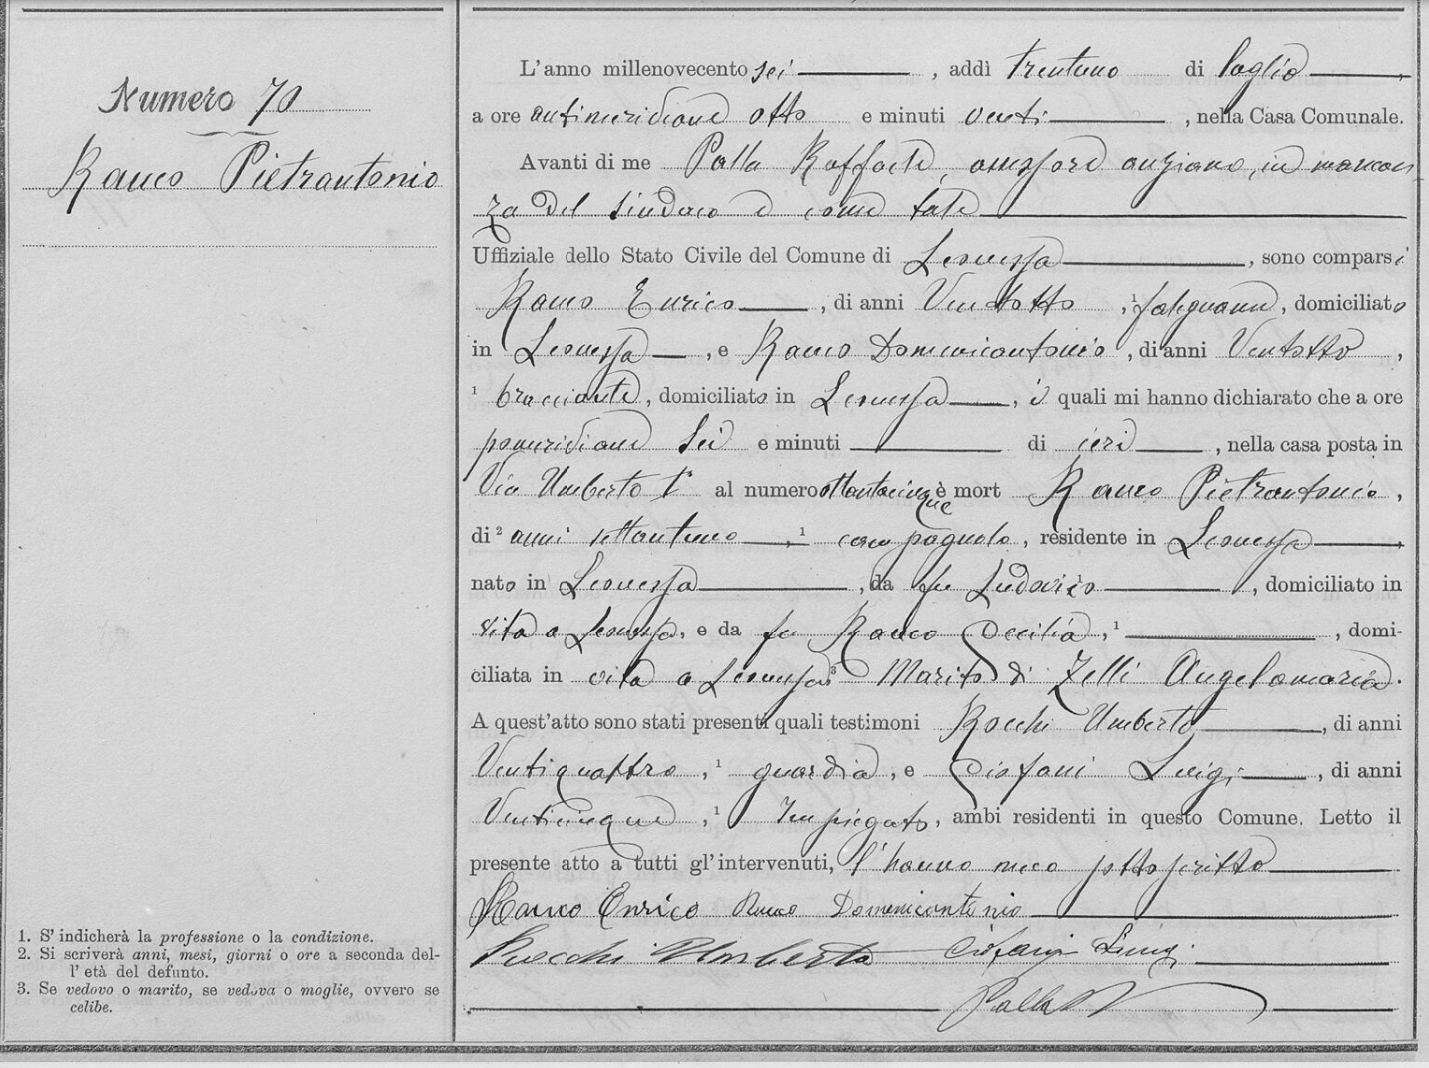 Numero 70
Rauco Pietrantonio
L'anno millenovecento sei, addì trentuno di luglio,
a ore antimeridiane otto e minuti venti, nella Casa Comunale.
Avanti di me Palla Raffaele, assessore anziano, in mancan-
za del sindaco e come tale
Uffiziale dello Stato Civile del Comune di Leonessa, sono comparsi
Rauco Enrico, di anni Ventotto, ¹ falegname, domiciliato
in Leonessa, e Rauco Domenicantonio, di anni Ventotto,
¹ bracciante, domiciliato in Leonessa, i quali mi hanno dichiarato che a ore
pomeridiane sei e minuti di ieri, nella casa posta in
Via Umberto I° al numero ottantacinque è mort Rauco Pietrantonio,
di ² anni settantuno, ¹ campagnolo, residente in Leonessa,
nato in Leonessa, da fu Ludovico, domiciliato in
vita a Leonessa, e da fu Rauco Cecilia, ¹ , domi-
ciliata in vita a Leonessa ³ Marito di Zelli Angelamaria.
A quest'atto sono stati presenti quali testimoni Rocchi Umberto, di anni
Ventiquattro, ¹ guardia, e Ciofani Luigi, di anni
Venticinque, ¹ Impiegato, ambi residenti in questo Comune. Letto il
presente atto a tutti gl'intervenuti, l'hanno meco sottoscritto
Rauco Enrico Rauco Domenicantonio
Rocchi Umberto Ciofani Luigi
Palla R
1. S'indicherà la professione o la condizione.
2. Si scriverà anni, mesi, giorni o ore a seconda del-
l'età del defunto.
3. Se vedovo o marito, se vedova o moglie, ovvero se
celibe.